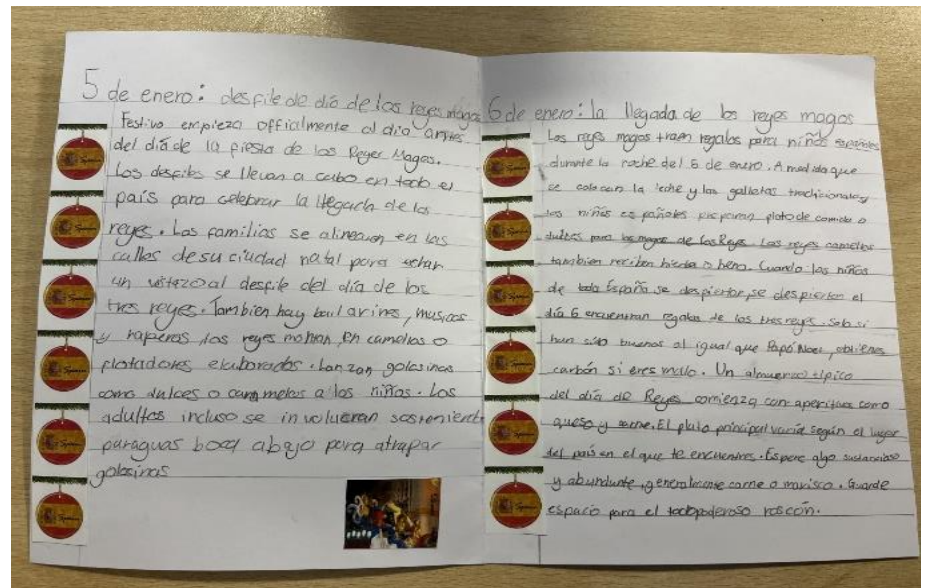 5 de enero: desfile de día de los reyes magos
Festivo empieza officialmente al dia antes
del día de la fiesta de los Reyer Magos.
Los desfiles se llevan a cabo en todo el
país para celebrar la llegada de los
reyes. Las familias se alinean en las
calles de su ciudad natal para echar
un vistazo al desfile del día de los
tres reyes. Tambien hay bailarines, musicos
y raperos los reyes montan en camellos o
flotadores elaborados. Lanzan golosinas
como dulces o caramelos a los niños. Los
adultos incluso se involucran sosteniendo
paraguas boca abajo para atrapar
golosinas
6 de enero: la llegada de los reyes magos
Los reyes magos traen regalos para niños españoles
durante la noche del 5 de enero. A medida que
se colocan la leche y las galletas tradicionales,
los niños españoles preparan plato de comida o
dulces para los magos de los Reye. Los reyes camellos
tambien reciben hierba o heno. Cuando los niños
de toda España se despiertan, se despierten el
día 6 encuentran regalos de los tres reyes. Solo si
han sido buenos al igual que Papá Noel, obtienes
carbón si eres malo. Un almuerzo típico
del día de Reyes comienza con aperitivos como
queso y carne. El plato principal varía según el lugar
del país en el que te encuentres. Espere algo sustancioso
y abundante, generalmente carne o marisco. Guarde
espacio para el todopoderoso roscón.